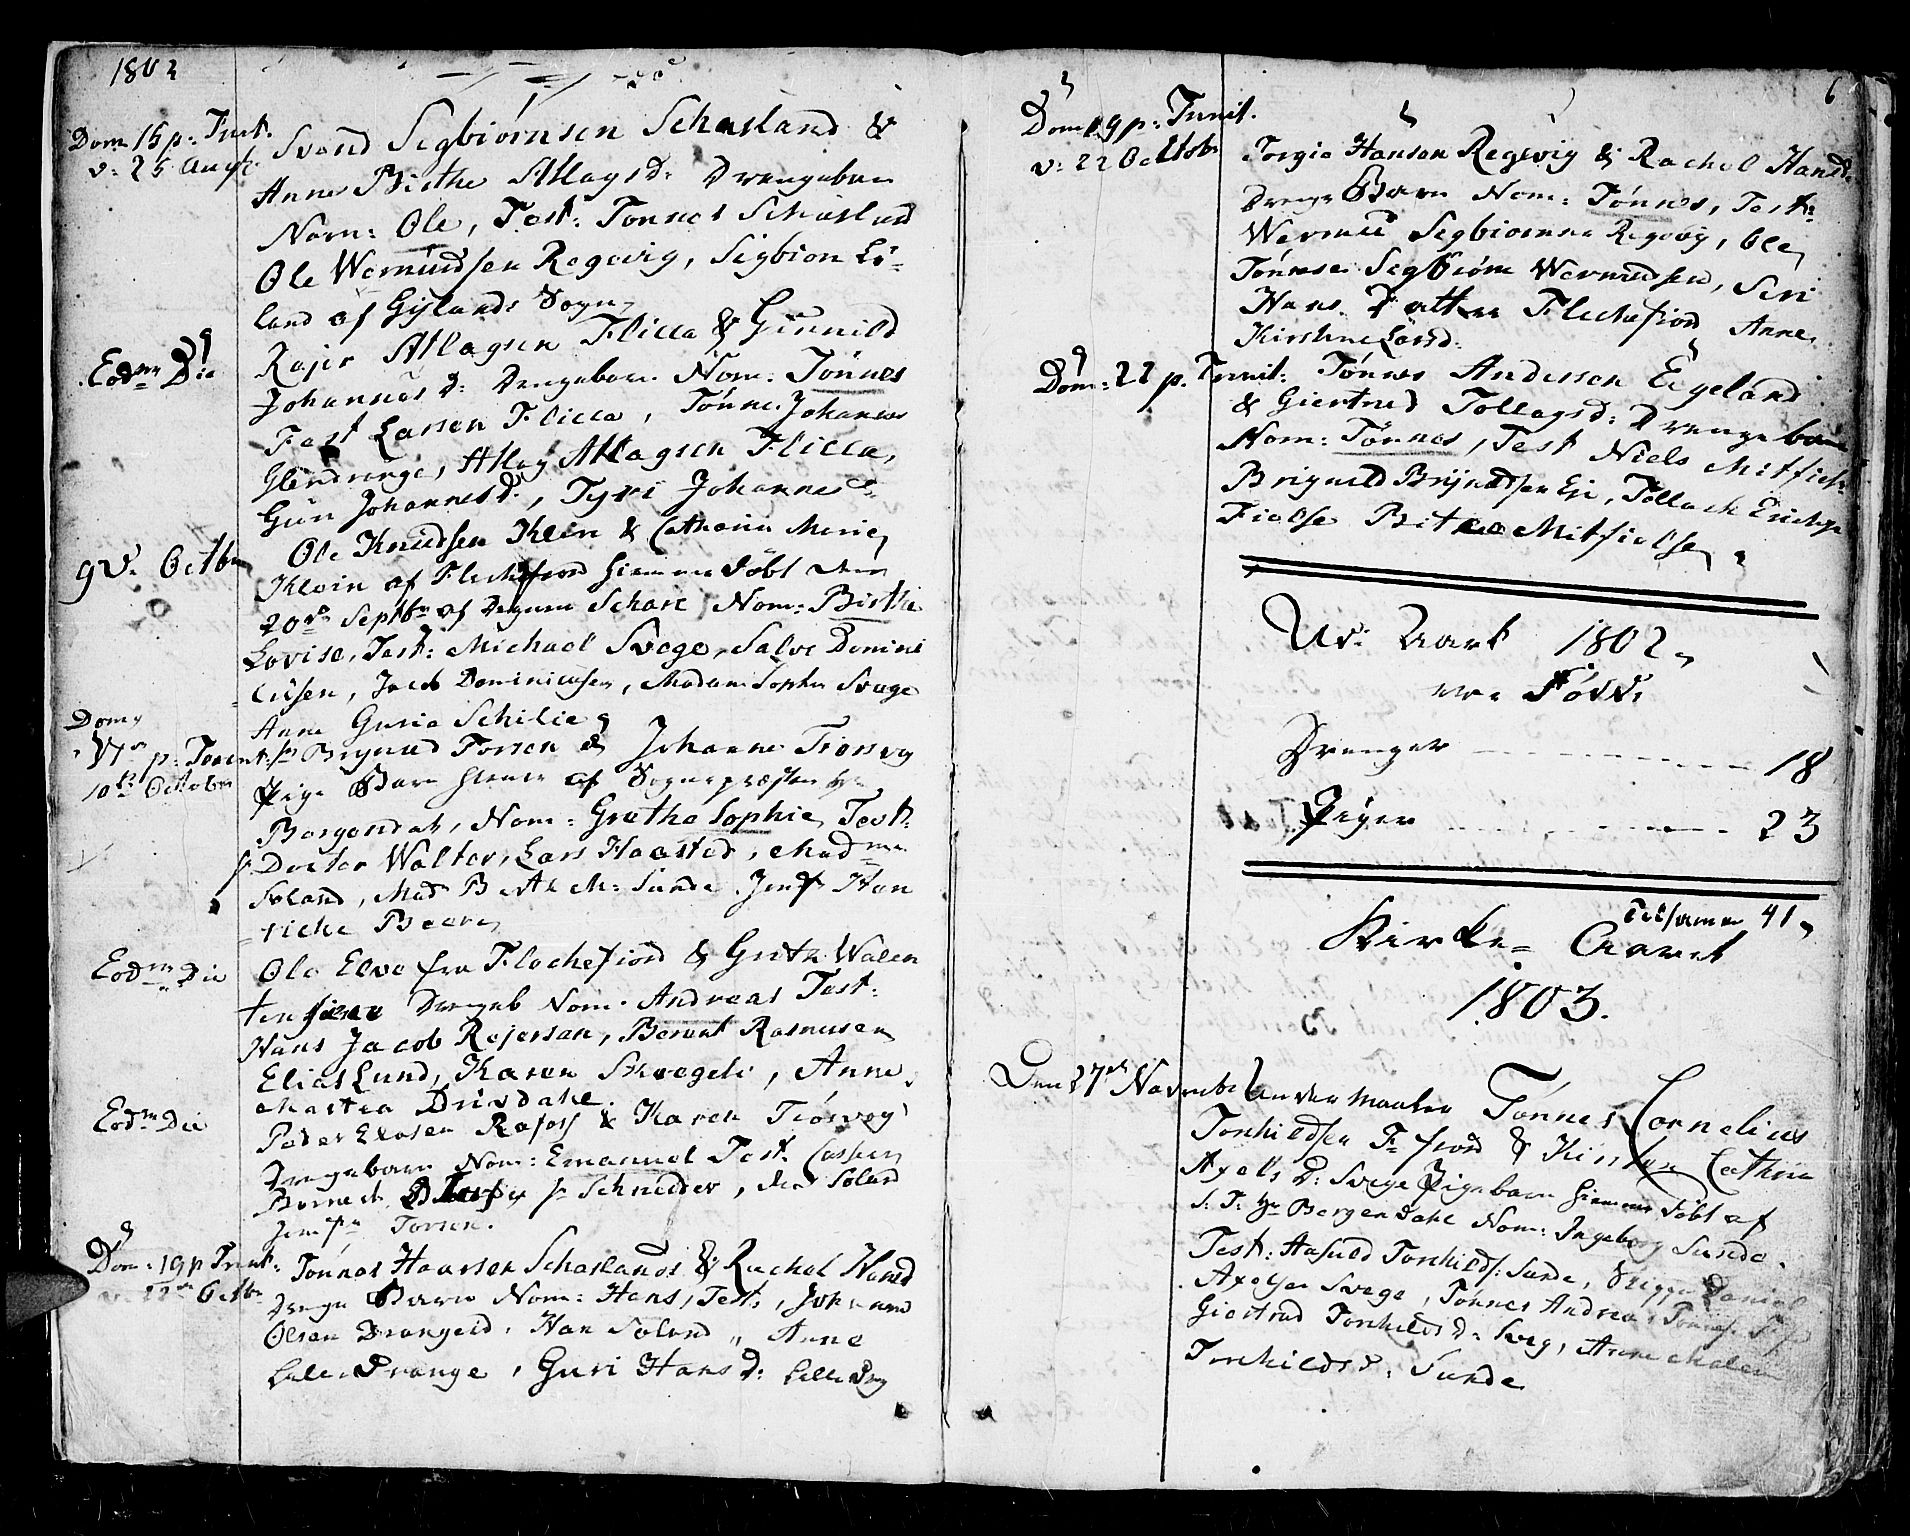 1802
Dom 15 p. Trit.
d. 25 Augt.
Svend Segbiørnsen Schasland &
Anne Birthe Atlagsd: Drengebarn
Nom: Ole, Test: Tønnes Schasland
Ole Wermundsen Regevig, Sigbion Li-
land af Gylands Sogn
Eodm Die
Rejer Atlagsen Flicca & Gunnild
Johannes D: Drengebarn Nom: Tønnes
Test Larsen Flicca, Tønne Johannes
Glendrange, Atlag Atlagsen Flicca,
Guri Johannesd., Tyri Johannes
9 d. Octbr
Ole Knudsen Klein & Cathrine Marie
Klein af Flechefiord hiemme døbt den
20de Septbr af Degnen Schare Nom: Birthe
Lovise, Test: Michael Svege, Salve Domini
cusen, Jacob Dominicusen, Madam Sophie Svege
Anne Guria Schilie
Dom
17de p. Trinit:
10de October
Brynild Torsen & Johanne Tiorsvog
Pige Barn hiemme af Sognepræsten hr
Bergendah, Nom: Grethe Sophie, Test:
Doctor Walter, Lars Haasted, Madme
Soland, Mad Birthe M: Sunde Jomf Han
riche Beer
Eodm Die
Ole Elve fra Flechefiord & Grethe Walen
tensiene Drengeb Nom. Andreas Test:
Hans Jacob Rejersen, Berent Rasmusen
Elias Lund, Karen Skregeli, Anne
Martea Drivdahl.
Eodm Die
Peder Elasen Rafoss & Karen Tiørsvog
Drengebarn Nom: Emanuel Test. Casper
Berndt Schnedder, Soland
Jomfr Torsen.
Dom: 19 p Trinit:
d. 22 Octbr
Tønnes Haarsen Schaslands & Rachel Hansd
Drenge Barn Nom: Hans, Test, Johannes
Olsen Drangeid, Han Soland, Anne
Lille Drange, Guri Hans D: Lille Drg
6
Dom 19 p: Trinit.
d: 22 Octobr
Torgie Hansen Regevig & Rachel Hansd.
Drenge Barn Nom: Tønnes, Test:
Wermud Segbiornsen Regevig, Ole
Tønnese Segbiørn Wermudsen, Siri
Hans Datter Flechefiord Anne
Kirstine Larsd.
Dom: 22 p. Trinit:
Tønnes Andersen Eigeland
& Giertrud Tollagsd: Drenge barn
Nom: Tønnes, Test Niels Mitfiels
Brignild Brynildsen Eje, Tollack Erichs
Fielse Mitfielse
Udi Aaret 1802
ere Fødde
Drenger 18
Piger 23
Tilsamen 41
Kirke-Aaret
1803.
Den 27de November
Undermaaler Tønnes Cornelius
Torkildsen F-fiord & Kirsten Cathrine
Axels D: Svege Pigebarn hiemme døbt af
S: T: Hr Bergendahl Nom: Ingeborg Sunde
Test: Asuld Torkilds: Sunde, Skipper Daniel
Axelsen Svege, Tønnes Andreas Tønnes
Giertrud Torkilds D: Sveg, Anne Malene
Torkildsd. Sunde